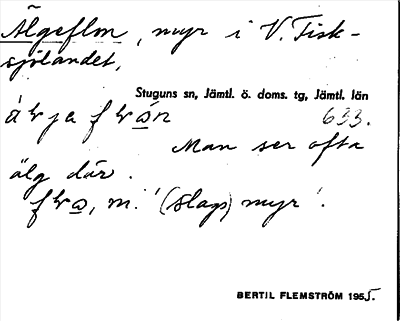 Älgeflon, myr i V. Fisk-
sjölandet,
Stuguns sn, Jämtl. ö. doms. tg, Jämtl. län
633.
Man ser ofta
älg där.
m. '(slags) myr'.
BERTIL FLEMSTRÖM 1955.